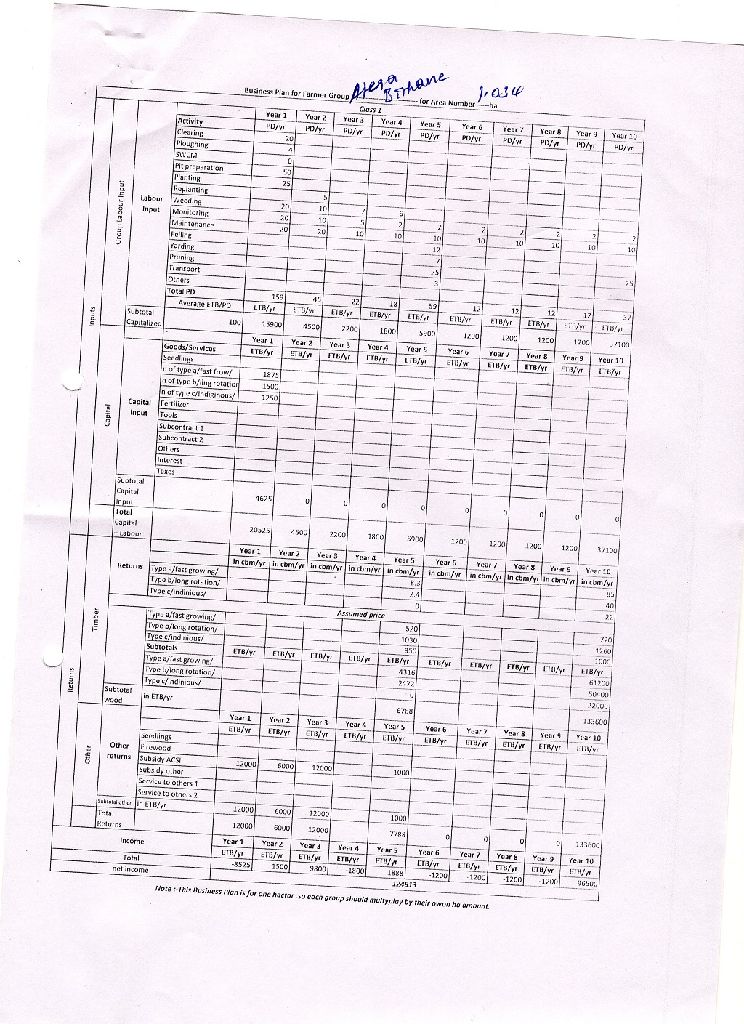 Business Plan for Farmer Group Afera Berhane for Area Number 1.034 ha
Class 1
Activity Year 1 Year 2 Year 3 Year 4 Year 5 Year 6 Year 7 Year 8 Year 9 Year 10
PD/yr PD/yr PD/yr PD/yr PD/yr PD/yr PD/yr PD/yr PD/yr PD/yr
Inputs
Group Labour Input
Labour Input
Clearing 20
Ploughing 4
Pit preparation 50
Planting 25
Replanting 5
Weeding 20 10
Monitoring 20 10 5 2 2 2 2 2 2 2
Maintenance 20 20 10 10 10 10 10 10 10 10
Felling 12
Yarding 7
Pruning
Transport 25
Others 3 25
Total PD 159 45 22 18 59 12 12 12 12
Average ETB/PD ETB/yr ETB/yr ETB/yr ETB/yr ETB/yr ETB/yr ETB/yr ETB/yr ETB/yr ETB/yr
Subtotal Capitalized 100 15900 4500 2200 1800 5900 1200 1200 1200 1200 37100
Capital
Capital Input
Goods/Services Year 1 Year 2 Year 3 Year 4 Year 5 Year 6 Year 7 Year 8 Year 9 Year 10
Seedlings ETB/yr ETB/yr ETB/yr ETB/yr ETB/yr ETB/yr ETB/yr ETB/yr ETB/yr ETB/yr
n of type a/fast grow/ 1875
n of type b/lng rotation 1500
n of type c/indiginious/ 1250
Fertilizer
Tools
Subcontract 1
Subcontract 2
Others
Interest
Taxes
Subtotal Capital Input 4625 0 0 0 0 0 0 0 0 0
Total Capital Labour 20525 4500 2200 1800 5900 1200 1200 1200 1200 37100
Returns
Timber
Returns Year 1 Year 2 Year 3 Year 4 Year 5 Year 6 Year 7 Year 8 Year 9 Year 10
in cbm/yr in cbm/yr in cbm/yr in cbm/yr in cbm/yr in cbm/yr in cbm/yr in cbm/yr in cbm/yr in cbm/yr
Type a/fast growing/ 8.3 85
Type b/long rotation/ 2.4 40
Type c/indinious/ 0 22
Assumed price
Type a/fast growing/ 520 720
Type b/long rotation/ 1030 1260
Type c/indinious/ 950 1000
Subtotals ETB/yr ETB/yr ETB/yr ETB/yr ETB/yr ETB/yr ETB/yr ETB/yr ETB/yr ETB/yr
Type a/fast growing/ 4316 61200
Type b/long rotation/ 2472 50400
Type c/indinious/ 0 22000
Subtotal wood in ETB/yr 6788 133600
Other
Other returns
Year 1 Year 2 Year 3 Year 4 Year 5 Year 6 Year 7 Year 8 Year 9 Year 10
Seedlings ETB/yr ETB/yr ETB/yr ETB/yr ETB/yr ETB/yr ETB/yr ETB/yr ETB/yr ETB/yr
Firewood
Subsidy ACSI 12000 6000 12000 1000
Subsidy other
Service to others 1
Service to others 2
Subtotal other in ETB/yr 12000 6000 12000 1000
Total Returns 12000 6000 12000 7788 0 0 0 0 133600
Income Year 1 Year 2 Year 3 Year 4 Year 5 Year 6 Year 7 Year 8 Year 9 Year 10
Total ETB/yr ETB/yr ETB/yr ETB/yr ETB/yr ETB/yr ETB/yr ETB/yr ETB/yr ETB/yr
net income -8525 1500 9800 -1800 1888 -1200 -1200 -1200 -1200 96500
Note : This Business Plan is for one hactor so each group should multyplay by their owen ha amount.